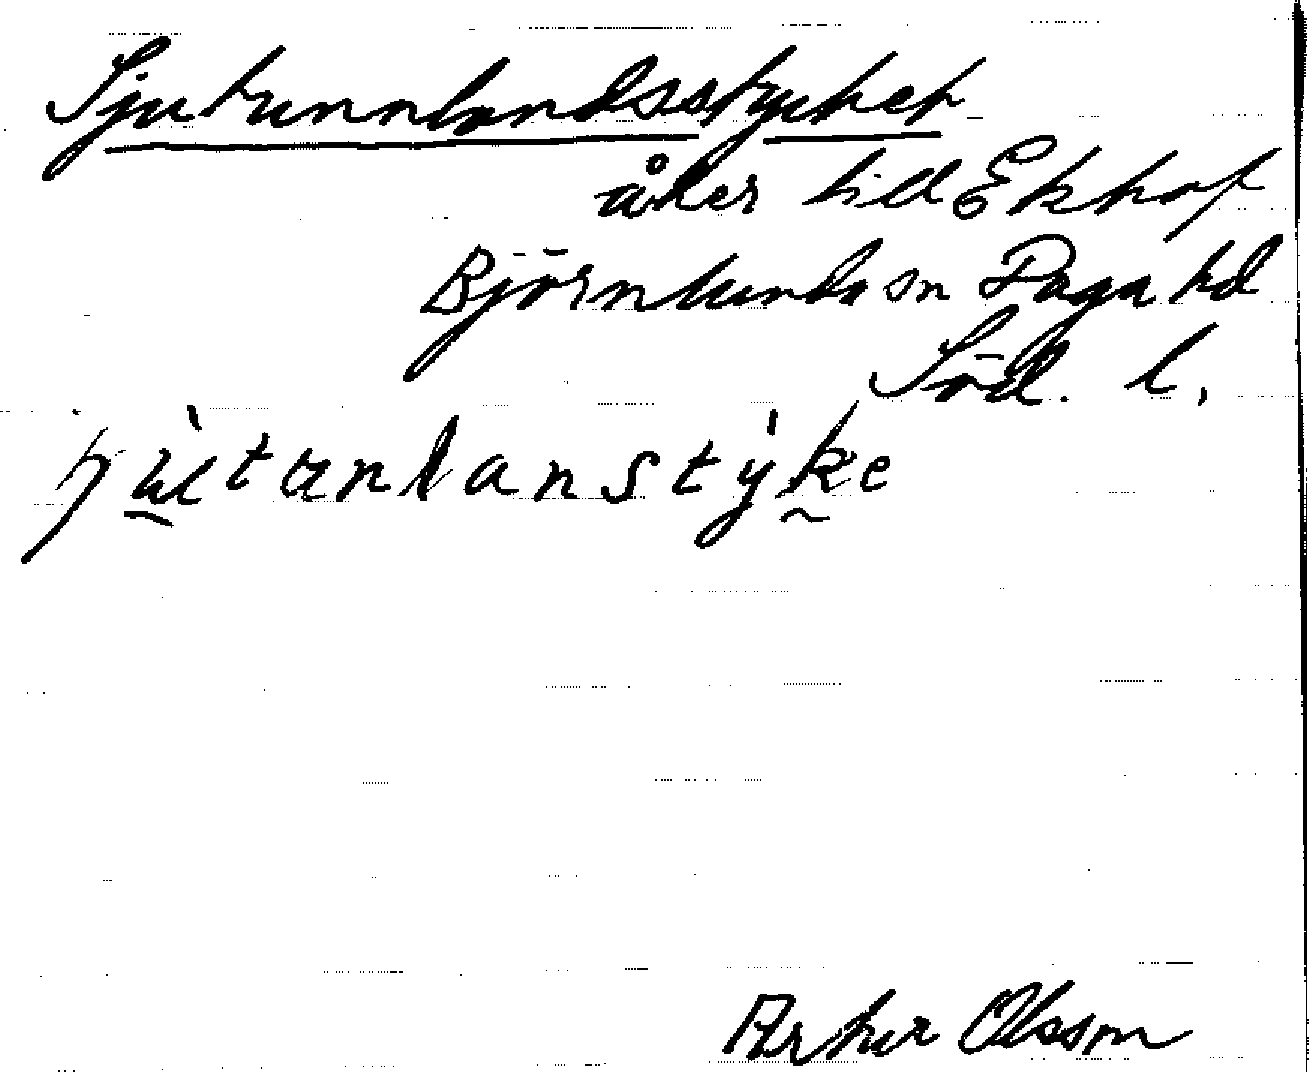 Sjutunnlandsstycket
åker till Ekhof
Björnlunda sn Daga hd
Söd. l.
Artur Olsson